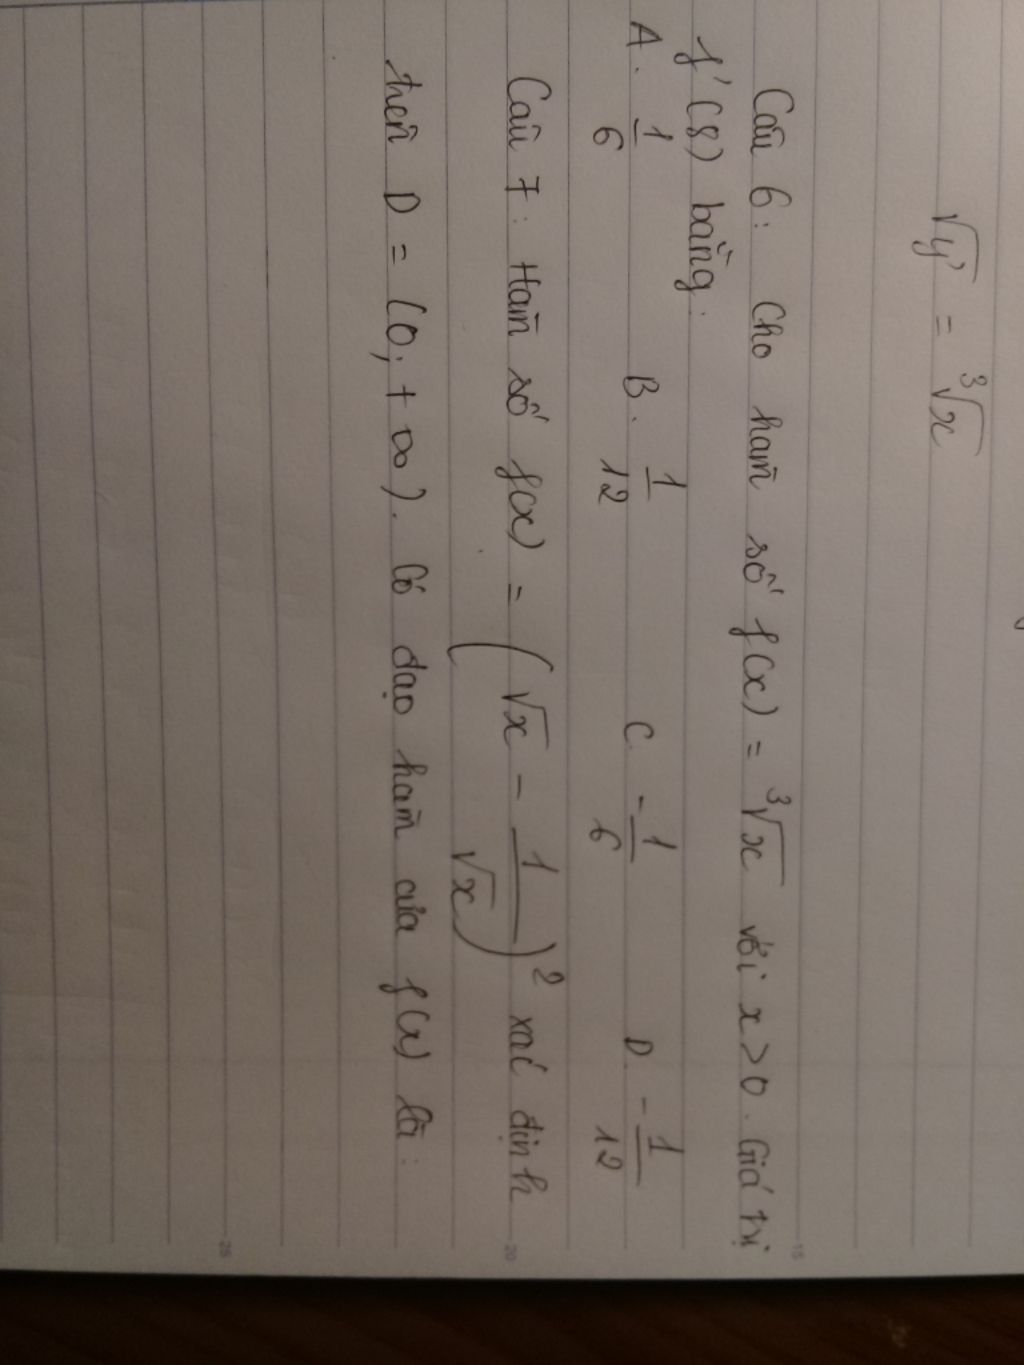 √y' = ³√x
Câu 6: Cho hàm số f(x) = ³√x với x>0. Giá trị
f'(8) bằng:
A. 1/6 B. 1/12 C. -1/6 D. -1/12
Câu 7: Hàm số f(x) = (√x - 1/√x)² xác định
trên D = (0; +∞). Có đạo hàm của f(x) là:
15
20
25